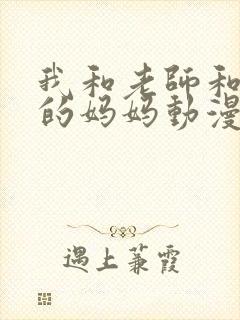 我和老師和
的妈妈動漫
遇上蒹霞